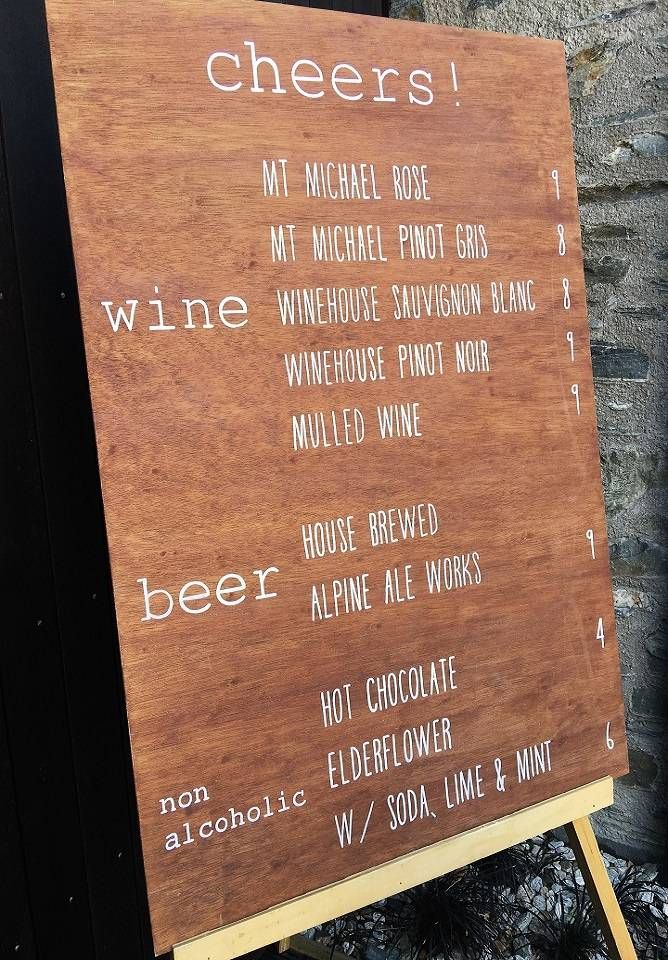 cheers!
MT MICHAEL ROSE 9
MT MICHAEL PINOT GRIS 8
wine WINEHOUSE SAUVIGNON BLANC 8
WINEHOUSE PINOT NOIR 9
MULLED WINE 9
HOUSE BREWED
beer ALPINE ALE WORKS 9
HOT CHOCOLATE 4
ELDERFLOWER
non alcoholic W/ SODA, LIME & MINT 6